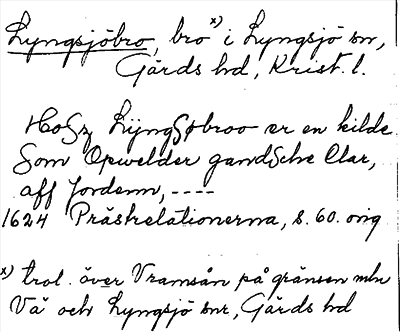 Lyngsjöbro, bro x) i Lyngsjö sn,
Gärds hd, Krist. l.
HoSz LijngSöbroo er en kilde
Som Opwelder gandSche Clar,
aff Jordenn, ----
1624 Prästrelationerna, s. 60. orig
x) trol. över Vramsån på gränsen mln
Vä och Lyngsjö snr, Gärds hd